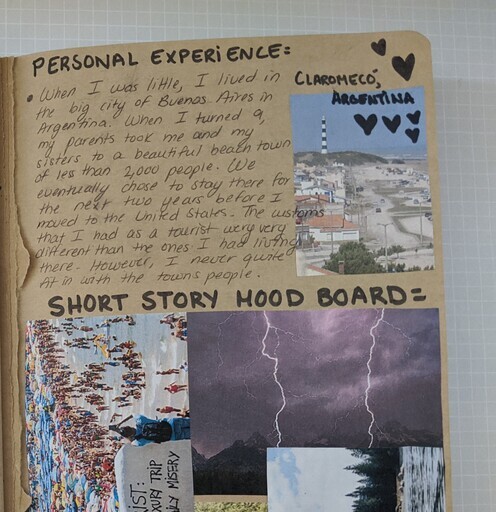 PERSONAL EXPERIENCE:
• When I was little, I lived in
the big city of Buenos Aires in
Argentina. When I turned 9,
my parents took me and my
sisters to a beautiful beach town
of less than 2,000 people. We
eventually chose to stay there for
the next two years before I
moved to the United States. The customs
that I had as a tourist were very
different than the ones I had living
there. However, I never quite
fit in with the town's people.
CLAROMECÓ,
ARGENTINA
SHORT STORY MOOD BOARD:
IST:
XURY TRIP
LY MISERY